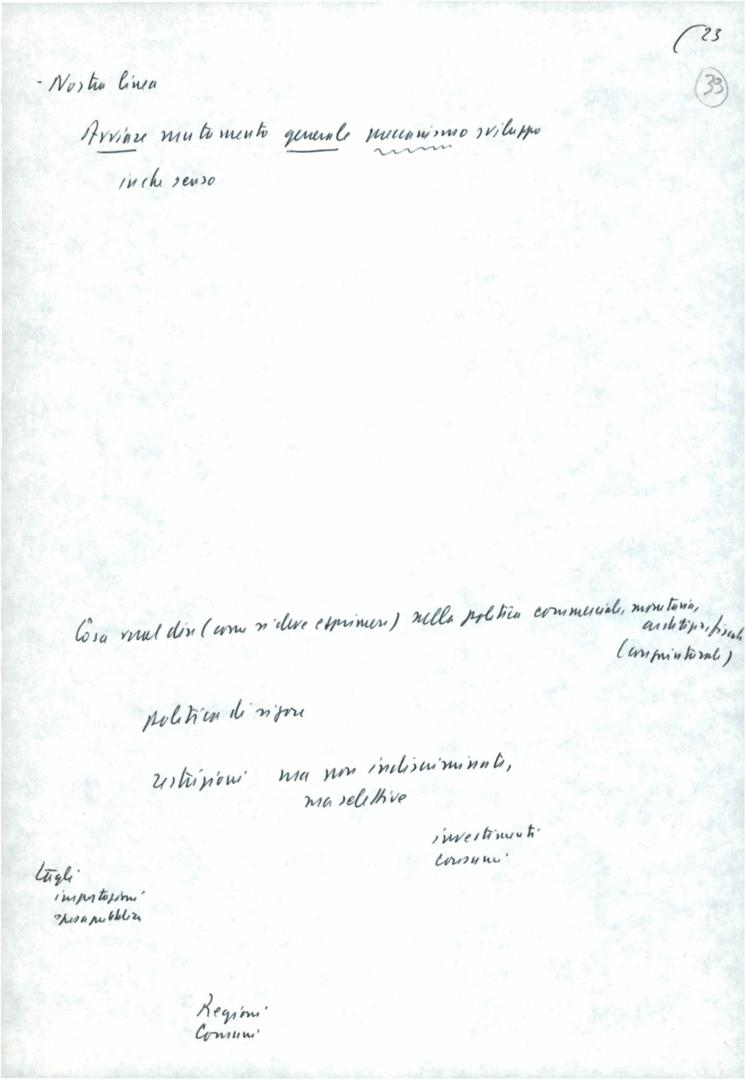 (23
33
- Nostra linea
Avviare mutamento generale meccanismo sviluppo
in che senso
Cosa vuol dire (come si deve esprimere) nella politica commerciale, monetaria,
creditizia, fiscale
(congiunturale)
politica di rigore
restrizioni ma non indiscriminate,
ma selettive
investimenti
consumi
tagli
importazioni
spesa pubblica
Regioni
Comuni